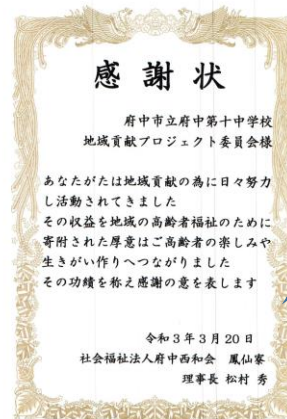 感謝状
府中市立府中第十中学校
地域貢献プロジェクト委員会様
あなたがたは地域貢献の為に日々努力
し活動されてきました
その収益を地域の高齢者福祉のために
寄附された厚意はご高齢者の楽しみや
生きがい作りへつながりました
その功績を称え感謝の意を表します
令和3年3月20日
社会福祉法人府中西和会 鳳仙寮
理事長 松村 秀